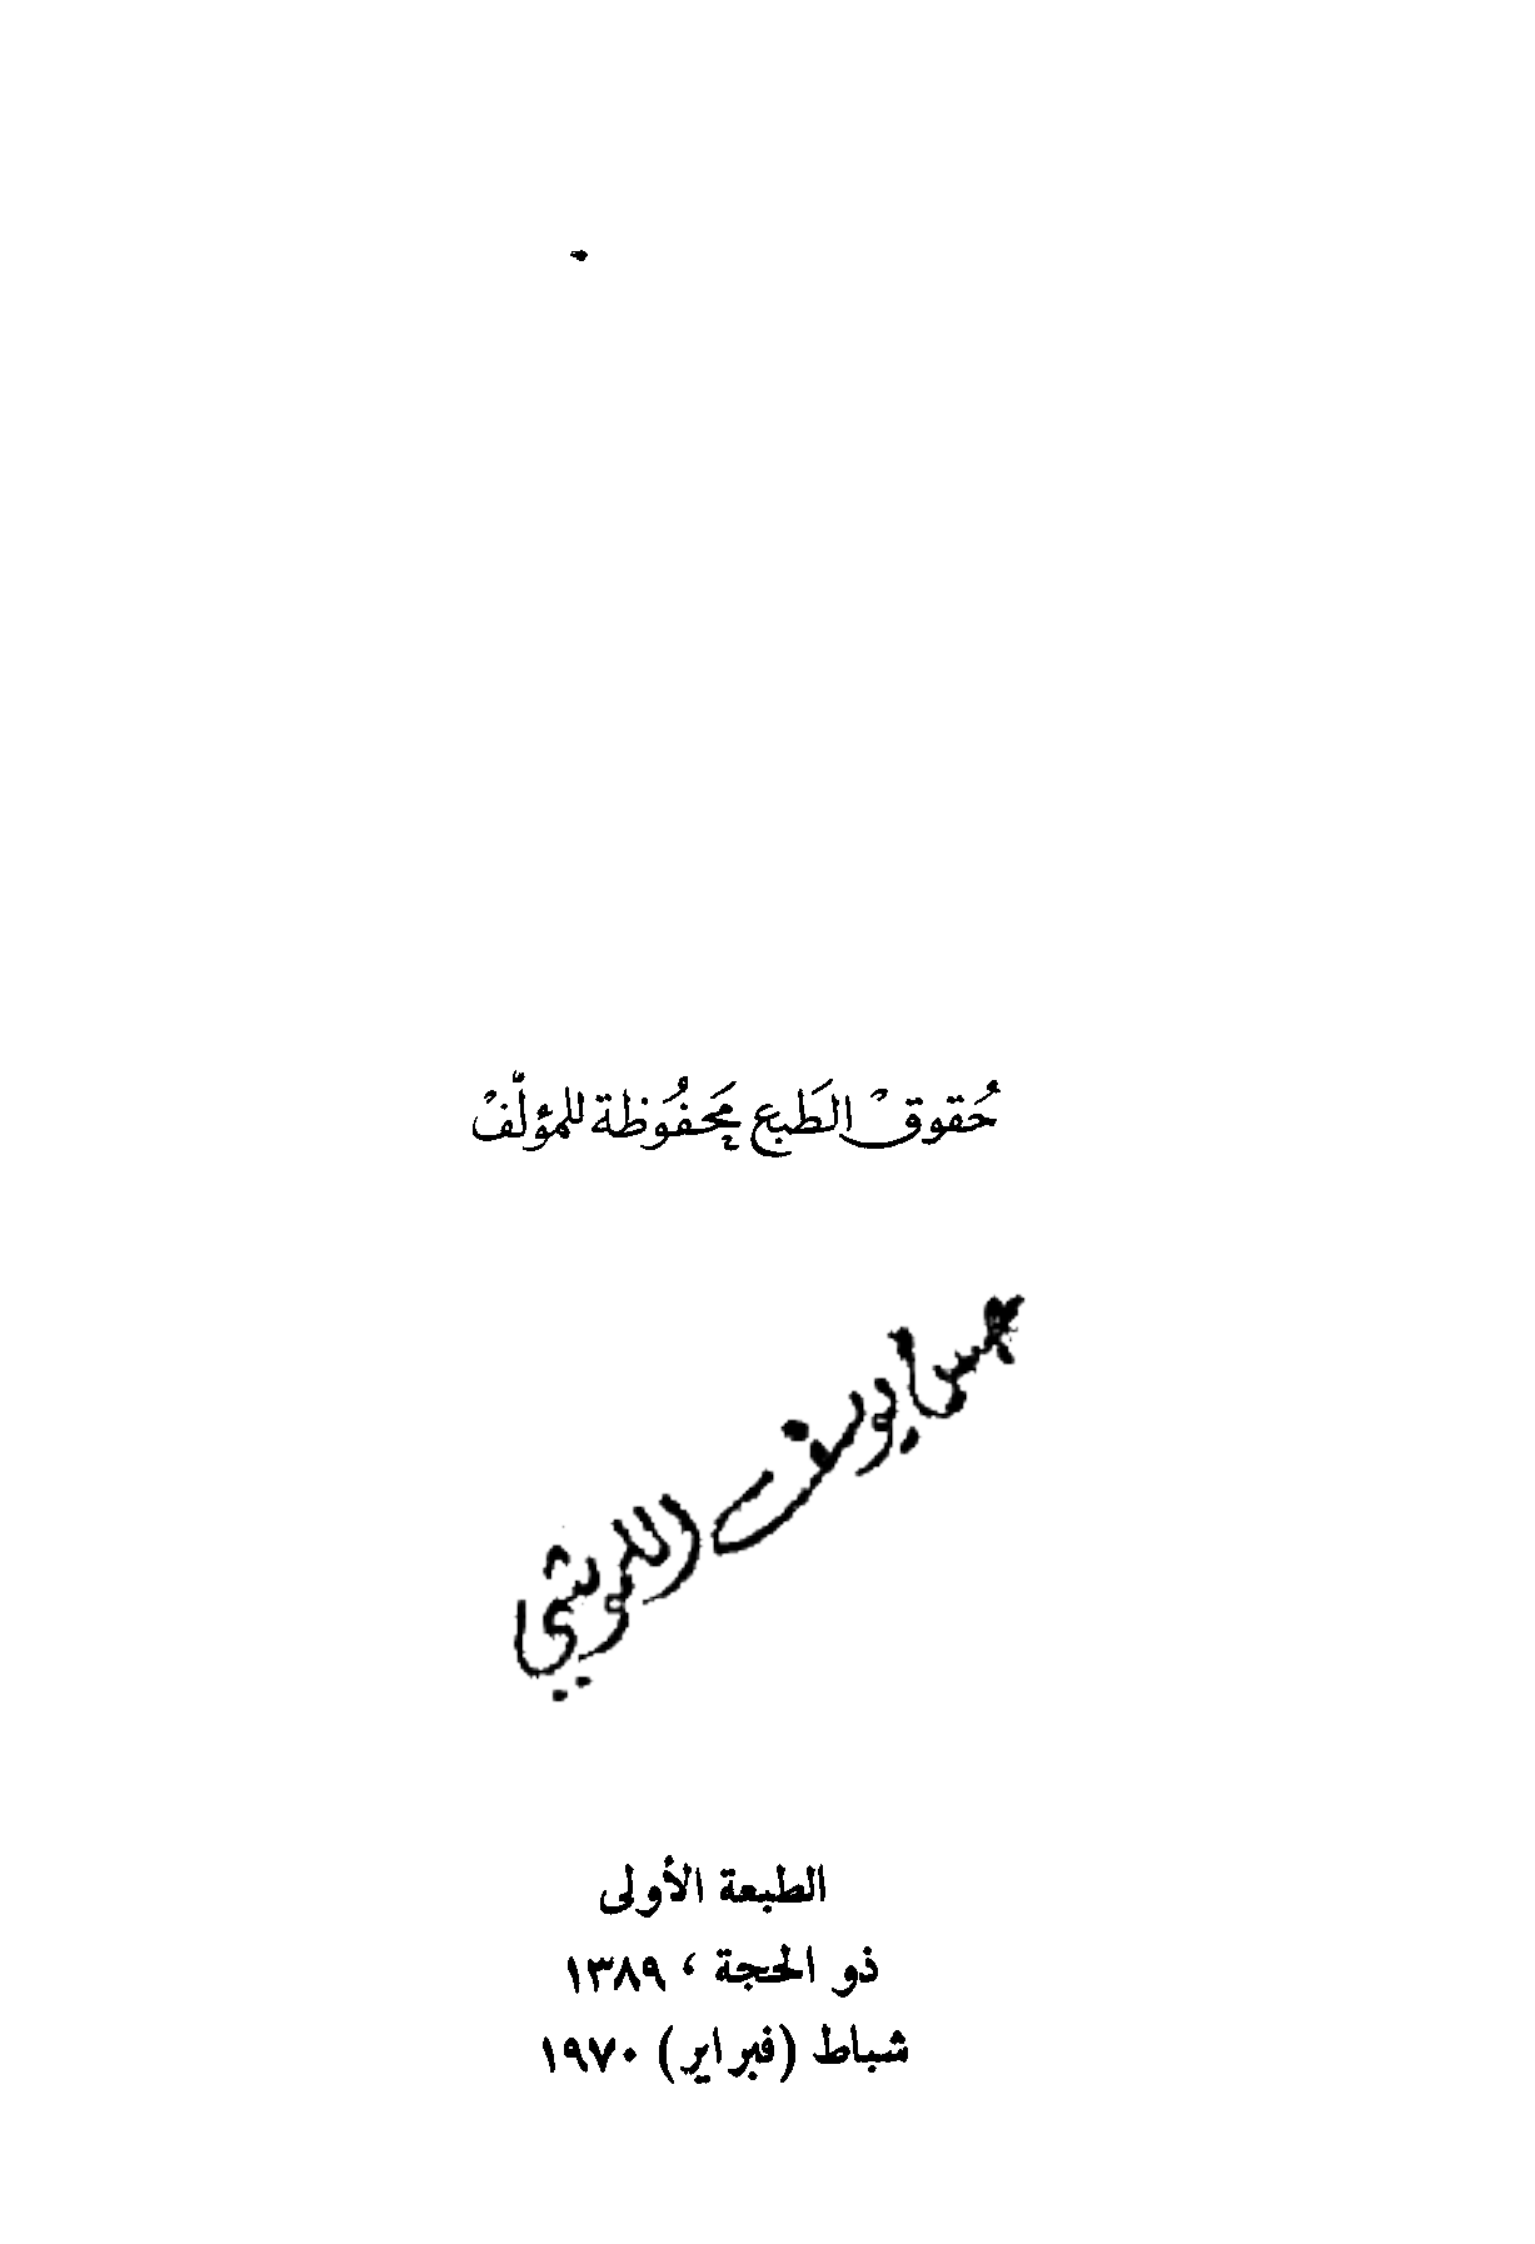 حُقوقْ الطَبع مَحفُوظة للمؤلّفْ
يوسف
الطبعة الأولى
ذو الحجة ، ١٣٨٩
شباط (فبراير) ١٩٧٠